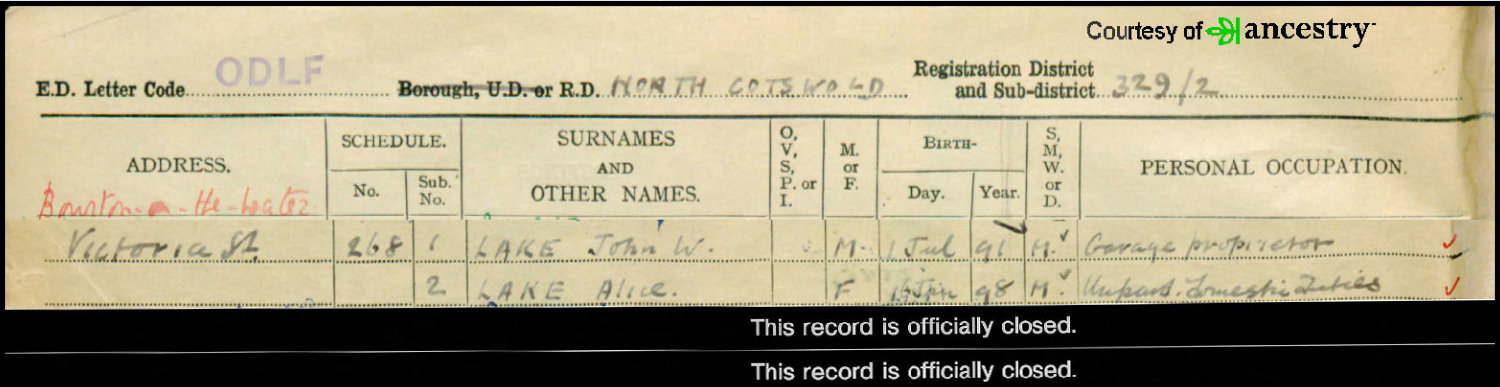 Courtesy of ancestry
E.D. Letter Code ODLF Borough, U.D. or R.D. NORTH COTSWOLD Registration District and Sub-district 329/2
ADDRESS. SCHEDULE. No. Sub. No. SURNAMES AND OTHER NAMES. O, V, S, P. or I. M. or F. BIRTH- Day. Year. S, M, W. or D. PERSONAL OCCUPATION.
Bourton-on-the-Water
Victoria St. 268 1 LAKE John W. M 1 Jul 91 M. Garage proprietor
2 LAKE Alice. F Jan 98 M Unpaid. Domestic Duties
This record is officially closed.
This record is officially closed.